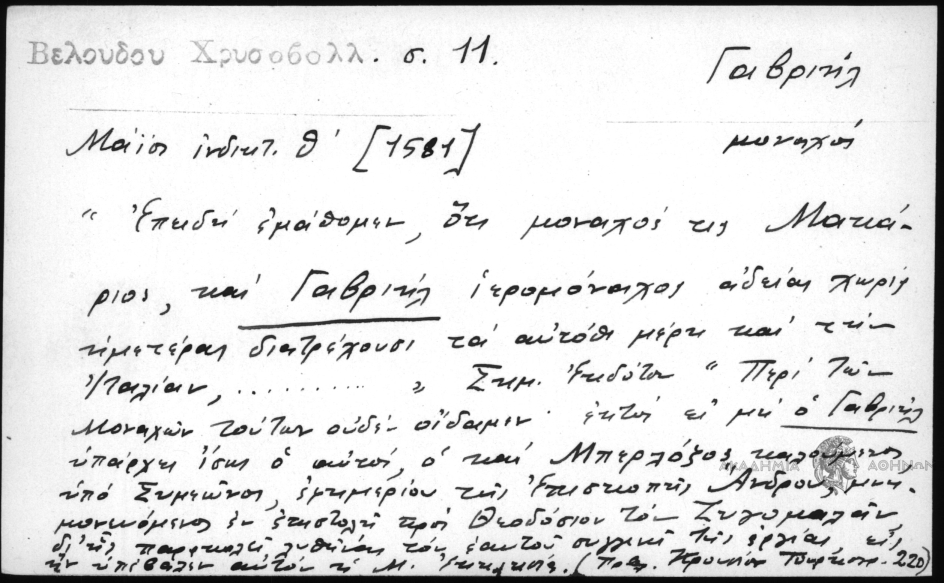 Βελουδου Χρυσοβολλ. σ. 11.
Γαβριήλ
μοναχός
Μαΐῳ ἰνδικτ. θ' [1581]
"Ἐπειδή ἐμάθομεν, ὅτι μοναχός τις Μακά-
ριος, καί Γαβριήλ ἱερομόναχος ἀδείας χωρίς
ἡμετέρας διατρέχουσι τά αὐτόθι μέρη καί τήν
Ἰταλίαν, .......... " Σημ. Ἐκδότου "Περί τῶν
Μοναχῶν τούτων οὐδέν οἴδαμεν· ἐκτός εἰ μή ὁ Γαβριήλ
ὑπάρχει ἴσως ὁ αὐτός, ὁ καί Μπερλόζος καλούμενος
ὑπό Συμεῶνος, ἐφημερίου τῆς Ἐπισκοπῆς Ἄνδρου, μνη-
μονευόμενος ἐν ἐπιστολῇ πρός Θεοδόσιον τόν Ζυγομαλᾶν
δι' ἧς παρεκάλει λυθῆναι τόν ἑαυτοῦ συγγενῆ τῆς ἀργίας εἰς
ἥν ὑπέβαλεν αὐτόν ἡ Μ. Ἐκκλησία. (Πρβ. Κρουσίου Τουρκογρ. 220)
ΑΚΑΔΗΜΙΑ ΑΘΗΝΩΝ